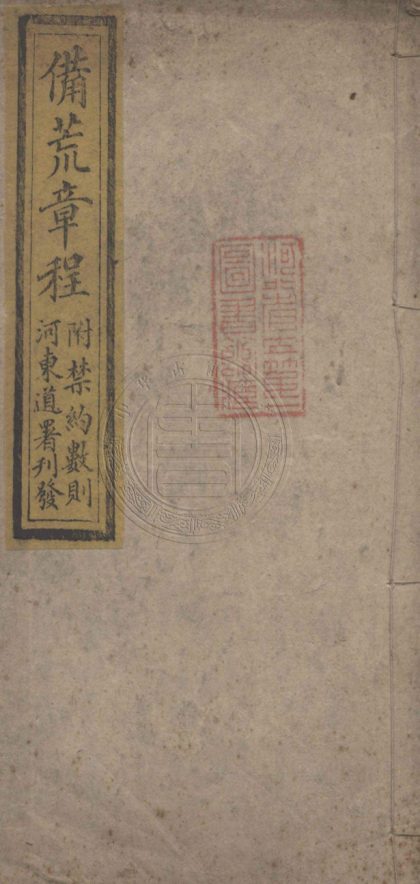 備荒章程
附禁約數則
河東道署刊發